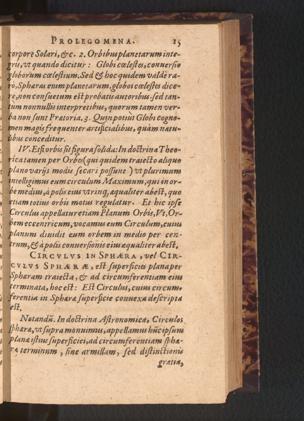 PROLEGOMENA. 15
corpore Solari, &c. 2. Orbibus planetarum inte-
gris, vt quando dicitur : Globi cœlestes, conuersio
globorum cœlestium. Sed & hoc quidem valdè ra-
rò, Sphæras enim planetarum, globos cœlestes dice-
re, non consuetum est probatis autoribus, sed tan-
tum nonnullis interpretibus, quorum tamen ver-
ba non sunt Pratoria. 3. Quin potius Globi cogno-
men magis frequenter artificialibus, quàm natu-
libus conceditur.
IV. Est orbis sit figura solida: In doctrina Theo-
rica tamen per Orbes (qui quidem traiecto aliquo
plano varijs modis secari possunt) vt plurimum
intelligimus eum circulum Maximum, qui in or-
be medius, à polis eius vtrinq, æqualiter abest, quo
etiam totius orbis motus regulatur. Et hic ipse
Circulus appellatur etiam Planum Orbis, Vt, Or-
bem eccentricum, vocamus eum Circulum, cuius
planum diuidit eum orbem in medio per cen-
trum, & à polis conuersionis eius æqualiter abest,
CIRCVLVS IN SPHÆRA, vel CIR-
CVLVS SPHÆRÆ, est superficies plana per
Sphæram traiecta, & ad circumferentiam eius
terminata, hoc est: Est Circulus, cuius circum-
ferentia in Sphæra superficie conuexa descripta
est.
Notandū. In doctrina Astronomica, Circulos
sphæræ, vt supra monuimus, appellamus hūc ipsum
planæ istius superficiei, ad circumferentiam sphæ-
ræ terminum, siue armillam, sed distinctionis
gratia,